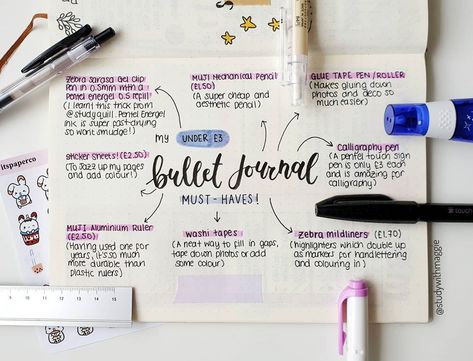 zebra sarasa Gel clip
Pen in 0.5mm with a
Pentel energel 0.5 refill!
(I learnt this trick from
@studyquill. Pentel Energel
ink is super fast-drying
so won't smudge!)
MUJI Mechanical Pencil
(£1.50)
(A super cheap and
aesthetic pencil)
GLUE TAPE PEN/ROLLER
(Makes gluing down
photos and deco so
much easier)
my UNDER £3
bullet journal
MUST-HAVES!
sticker sheets! (£2.50)
(To jazz up my pages
and add colour!)
calligraphy pen
(A pentel touch sign
pen is only £3 each
and is amazing for
calligraphy)
MUJI Aluminium Ruler
(£2.50)
(Having used one for
years, it's so much
more durable than
plastic rulers)
washi tapes
(A neat way to fill in gaps,
tape down photos or add
some colour)
zebra mildliners (£1.70)
(highlighters which double up
as markers for handlettering
and colouring in)
itspaperco
@studywithmaggie
1 2 3 4 5 6 7 8 9 10 11 12 13 14 15